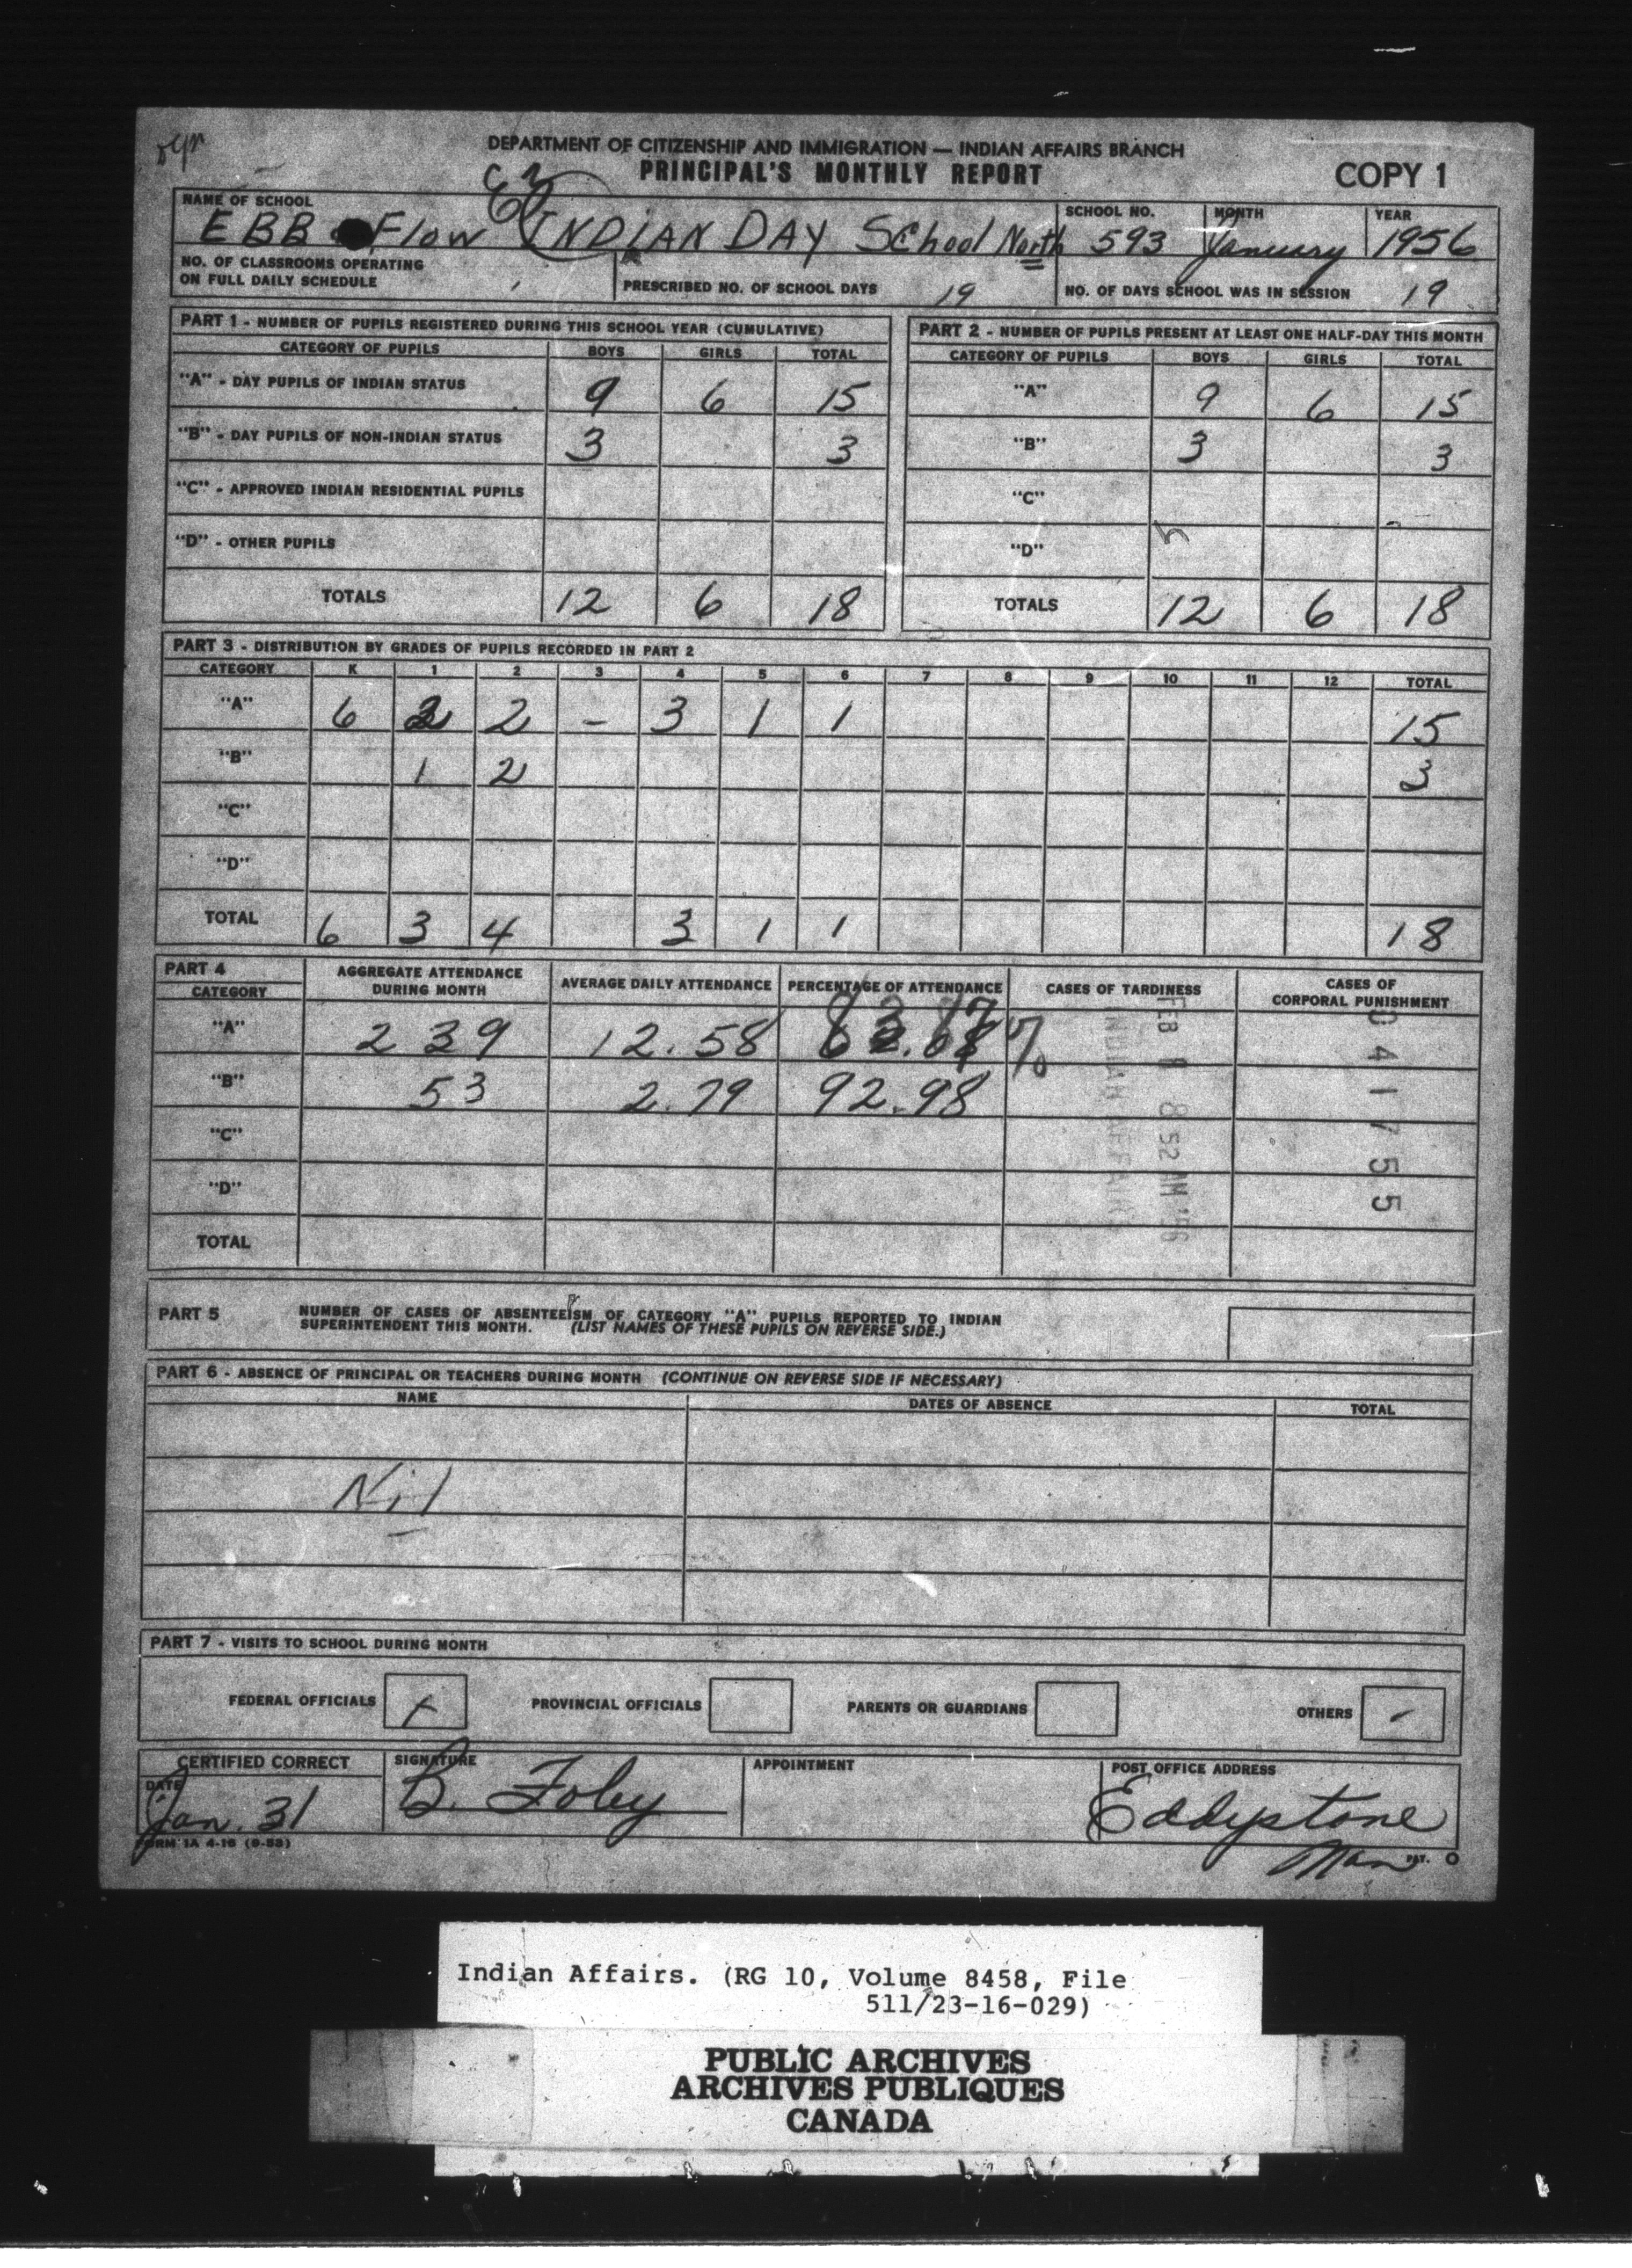 DEPARTMENT OF CITIZENSHIP AND IMMIGRATION — INDIAN AFFAIRS BRANCH
PRINCIPAL'S MONTHLY REPORT
COPY 1
NAME OF SCHOOL SCHOOL NO. MONTH YEAR
EBB Flow INDIAN DAY School North 593 January 1956
NO. OF CLASSROOMS OPERATING
ON FULL DAILY SCHEDULE PRESCRIBED NO. OF SCHOOL DAYS 19 NO. OF DAYS SCHOOL WAS IN SESSION 19
PART 1 - NUMBER OF PUPILS REGISTERED DURING THIS SCHOOL YEAR (CUMULATIVE)
CATEGORY OF PUPILS BOYS GIRLS TOTAL
"A" - DAY PUPILS OF INDIAN STATUS 9 6 15
"B" - DAY PUPILS OF NON-INDIAN STATUS 3 3
"C" - APPROVED INDIAN RESIDENTIAL PUPILS
"D" - OTHER PUPILS
TOTALS 12 6 18
PART 2 - NUMBER OF PUPILS PRESENT AT LEAST ONE HALF-DAY THIS MONTH
CATEGORY OF PUPILS BOYS GIRLS TOTAL
"A" 9 6 15
"B" 3 3
"C"
"D"
TOTALS 12 6 18
PART 3 - DISTRIBUTION BY GRADES OF PUPILS RECORDED IN PART 2
CATEGORY K 1 2 3 4 5 6 7 8 9 10 11 12 TOTAL
"A" 6 2 2 - 3 1 1 15
"B" 1 2 3
"C"
"D"
TOTAL 6 3 4 3 1 1 18
PART 4
CATEGORY AGGREGATE ATTENDANCE DURING MONTH AVERAGE DAILY ATTENDANCE PERCENTAGE OF ATTENDANCE CASES OF TARDINESS CASES OF CORPORAL PUNISHMENT
"A" 239 12.58 83.87 %
"B" 53 2.79 92.98
"C"
"D"
TOTAL
FEB 8 8 52 AM '56
INDIAN AFFAIRS
041755
PART 5 NUMBER OF CASES OF ABSENTEEISM OF CATEGORY "A" PUPILS REPORTED TO INDIAN
SUPERINTENDENT THIS MONTH. (LIST NAMES OF THESE PUPILS ON REVERSE SIDE.)
PART 6 - ABSENCE OF PRINCIPAL OR TEACHERS DURING MONTH (CONTINUE ON REVERSE SIDE IF NECESSARY)
NAME DATES OF ABSENCE TOTAL
Nil
PART 7 - VISITS TO SCHOOL DURING MONTH
FEDERAL OFFICIALS PROVINCIAL OFFICIALS PARENTS OR GUARDIANS OTHERS -
CERTIFIED CORRECT SIGNATURE APPOINTMENT POST OFFICE ADDRESS
DATE
Jan. 31 B. Foley Eddystone
Man
FORM 1A 4-16 (9-53) PAT.
Indian Affairs. (RG 10, Volume 8458, File
511/23-16-029)
PUBLIC ARCHIVES
ARCHIVES PUBLIQUES
CANADA